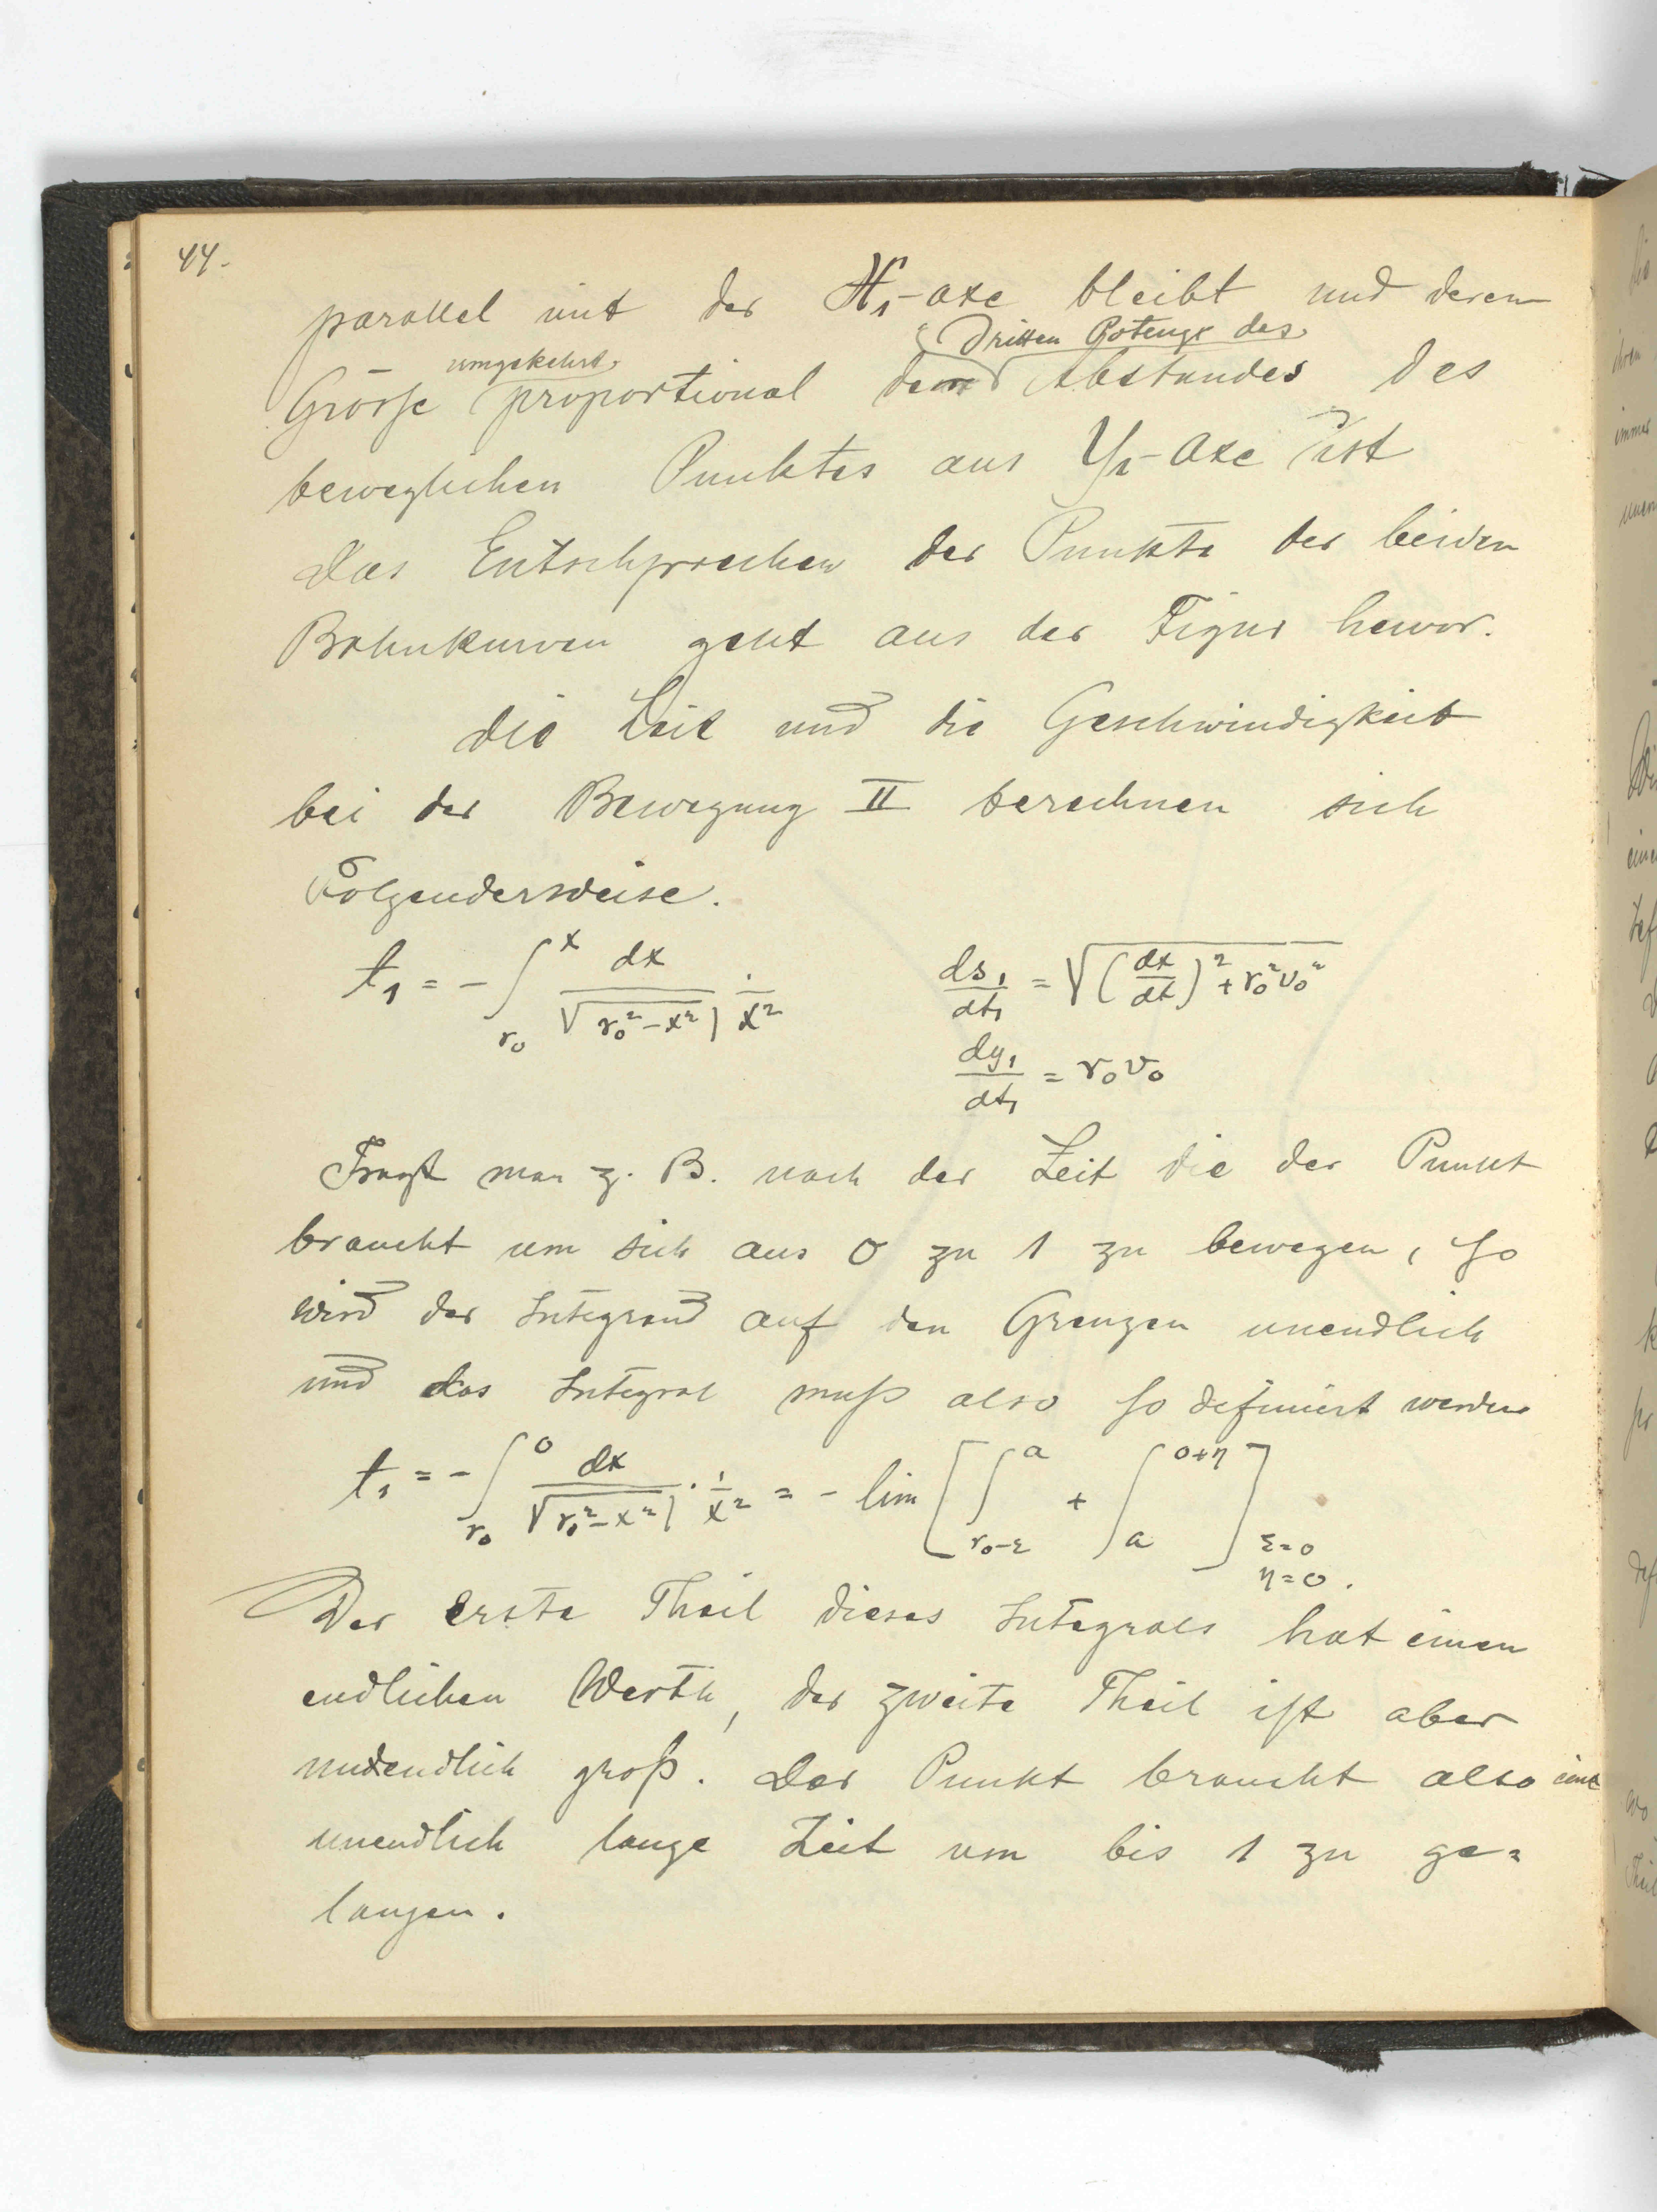 44.
parallel mit der X₁-axe bleibt und deren
umgekehrt dritten Potenz des
Grösse proportional dem Abstandes des
beweglichen Punktes aus Y₁-Axe ist
Das Entschprechen der Punkte der beiden
Bahnkurven geht aus der Figur hervor.
Die Zeit und die Geschwindigkeit
bei der Bewegung II berechnen sich
Folgenderweise.
t₁ = - ∫_{r₀}^{x} dx/√(r₀²-x²) · 1/x² ds₁/dt₁ = √((dx/dt)² + r₀²v₀²)
dy₁/dt₁ = r₀v₀
Fragt man z. B. nach der Zeit die der Punkt
braucht um sich aus 0 zu 1 zu bewegen, so
wird der Integrand auf den Grenzen unendlich
und das Integral muß also so definiert werden
t₁ = - ∫_{r₀}^{0} dx/√(r₀²-x²) · 1/x² = - lim [∫_{r₀-ε}^{a} + ∫_{a}^{0+η}] ε=0
η=0.
Der erste Theil dieses Integrals hat einen
endlichen Werth, der zweite Theil ist aber
unendlich groß. Der Punkt braucht also eine
unendlich lange Zeit um bis 1 zu ge=
langen.